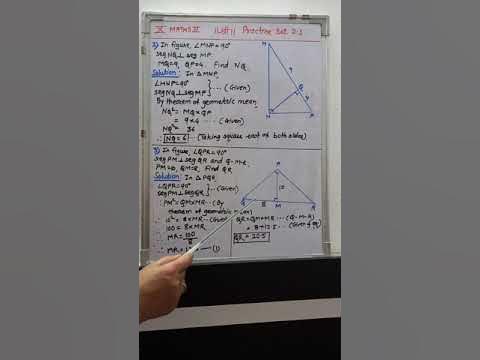 X MATHS II || UNIT || Practice Set 2.1
3) In figure, ∠MNP = 90°
seg NQ ⊥ seg MP.
MQ = 9, QP = 4. Find NQ.
Solution: In △MNP,
∠MNP = 90°
seg NQ ⊥ seg MP } ... (Given)
By theorem of geometric mean,
NQ² = MQ × QP
= 9 × 4
NQ² = 36
∴ NQ = 6 ... (Taking square root of both sides)
M
9
Q
4
N
P
In figure, ∠QPR = 90°
seg PM ⊥ seg QR and Q-M-R
PM = 10, QM = 8, Find QR.
Solution: In △PQR,
∠QPR = 90°
seg PM ⊥ seg QR } ... (Given)
∴ PM² = QM × MR ... (By
theorem of geometric mean)
∴ 10² = 8 × MR ... (Given)
∴ 100 = 8 × MR
∴ MR = 100
8
∴ MR = (1)
P
10
8
Q
M
R
QR = QM + MR ... (Q-M-R)
= 8 + 12.5 ... (Given &
QR = 20.5